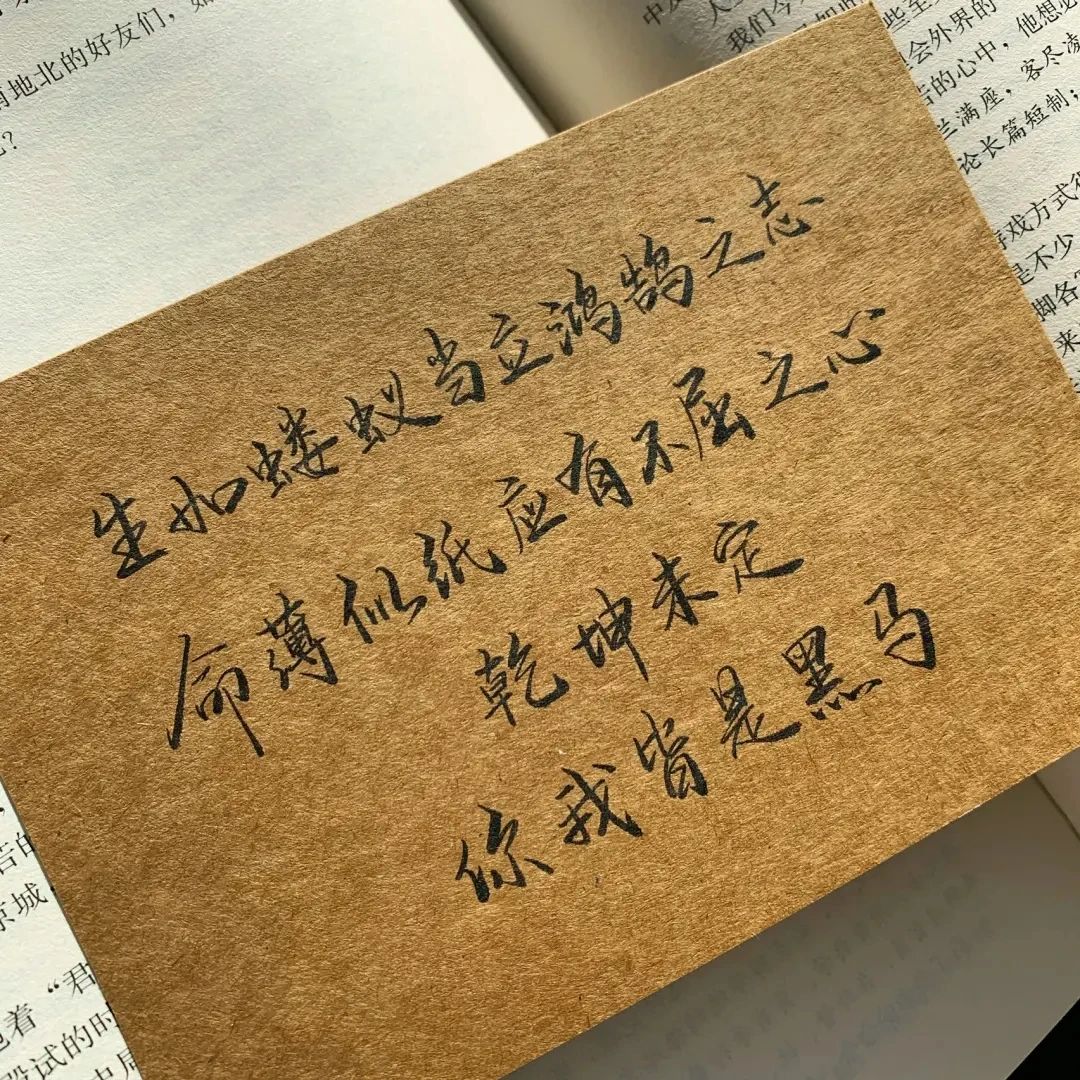 南地北的好友们，如
？
我们今
会外界的
的心中，他想必
兰满座，客尽凌
论长篇短制；
游戏方式很
是不少
脚各
来
生如蝼蚁当立鸿鹄之志
命薄似纸应有不屈之心
乾坤未定
你我皆是黑马
京城
着“君
殿试的时